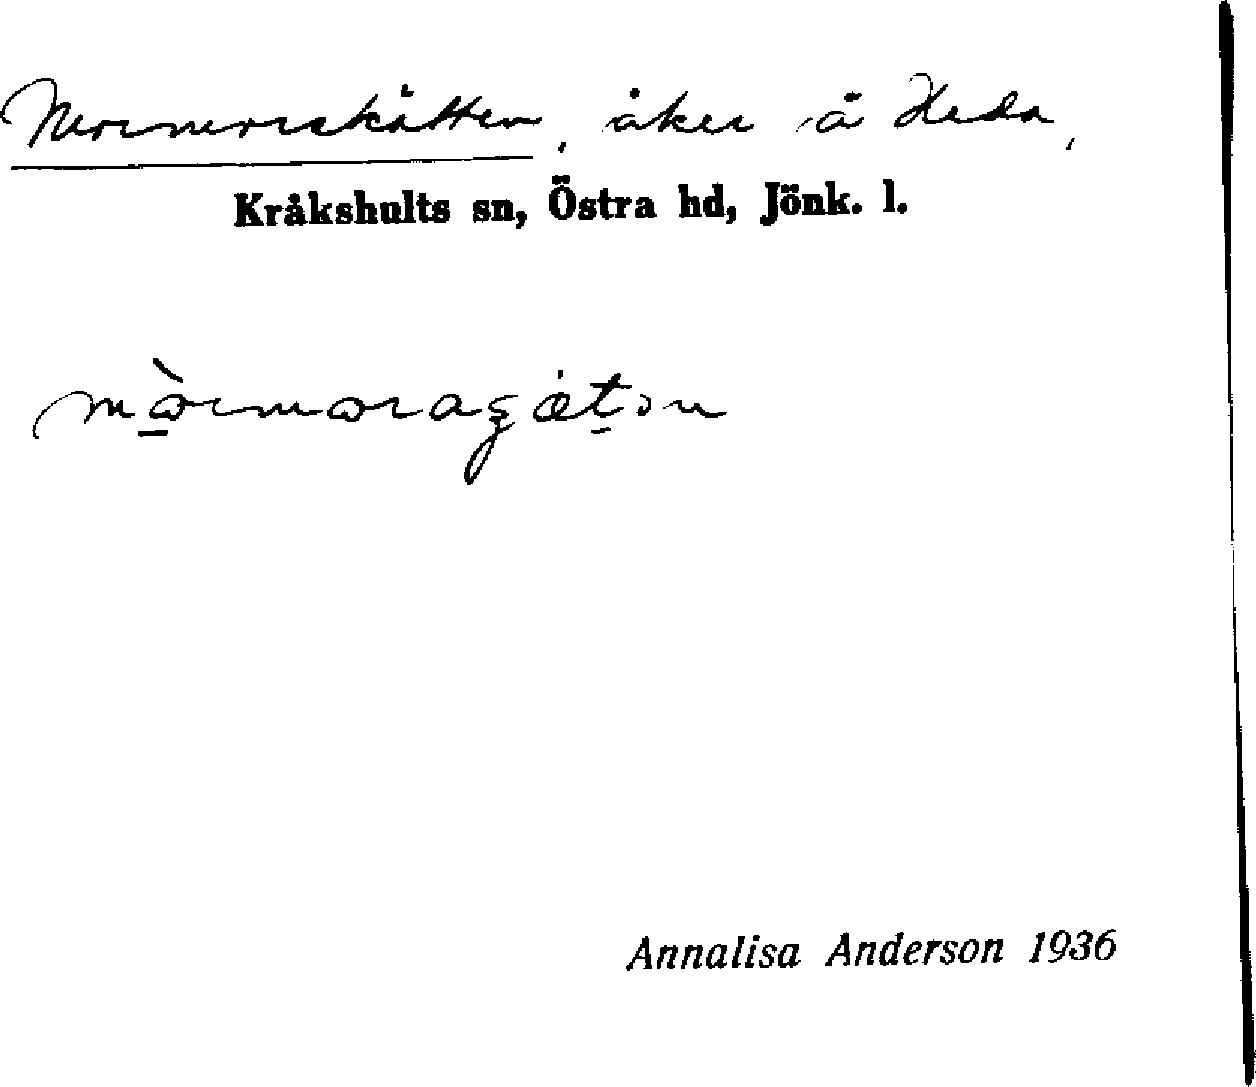 Mormorskätten, åker å Heda,
Kråkshults sn, Östra hd, Jönk. l.
Annalisa Anderson 1936